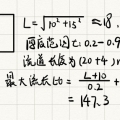 L=√10²+15² ≈18.
圆度范围t:0.2-0.9
流道长度为(20+4)π
最大流长比=L+10/0.2+
=147.3